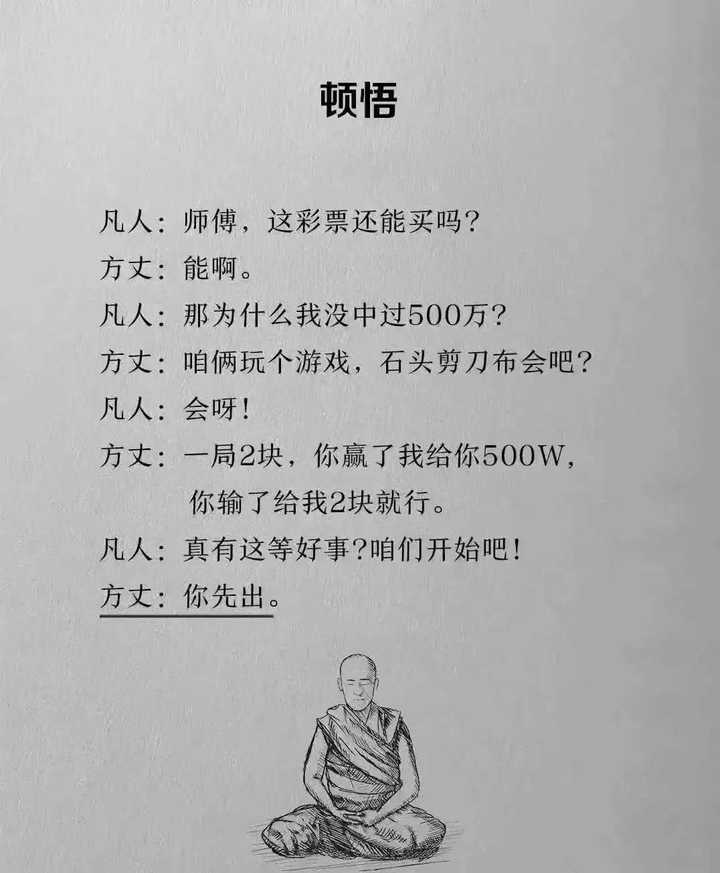 顿悟
凡人：师傅，这彩票还能买吗？
方丈：能啊。
凡人：那为什么我没中过500万？
方丈：咱俩玩个游戏，石头剪刀布会吧？
凡人：会呀！
方丈：一局2块，你赢了我给你500W，
你输了给我2块就行。
凡人：真有这等好事？咱们开始吧！
方丈：你先出。